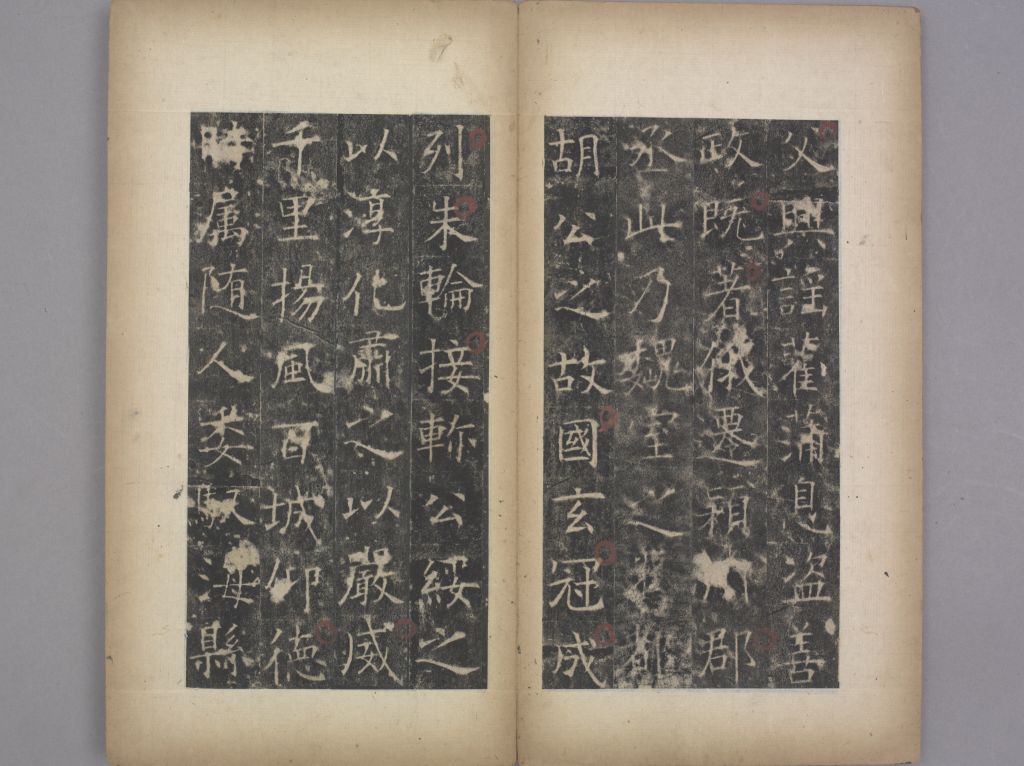 父興謠雚蒲息盗善
政既著俄遷潁川郡
丞此乃魏室之舊都
胡公之故國玄冠成
列朱輪接軫公綏之
以淳化肅之以嚴威
千里揚風百城仰德
時属随人委馭海縣